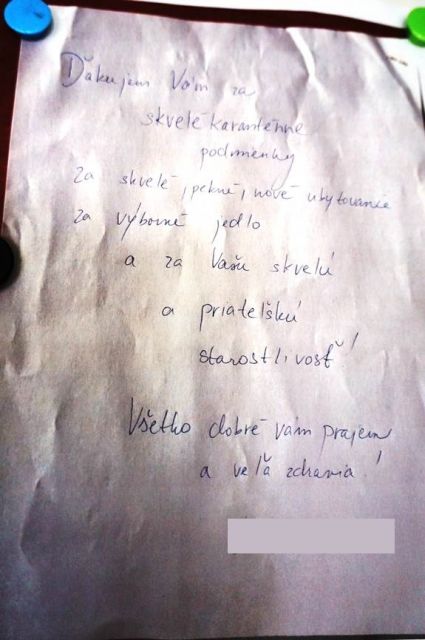 Ďakujem Vám za
skvelé karanténne
podmienky
za skvelé, pekné, nové ubytovanie
za výborné jedlo
a za Vašu skvelú
a priateľskú
starostlivosť!
Všetko dobré vám prajem
a veľa zdravia!